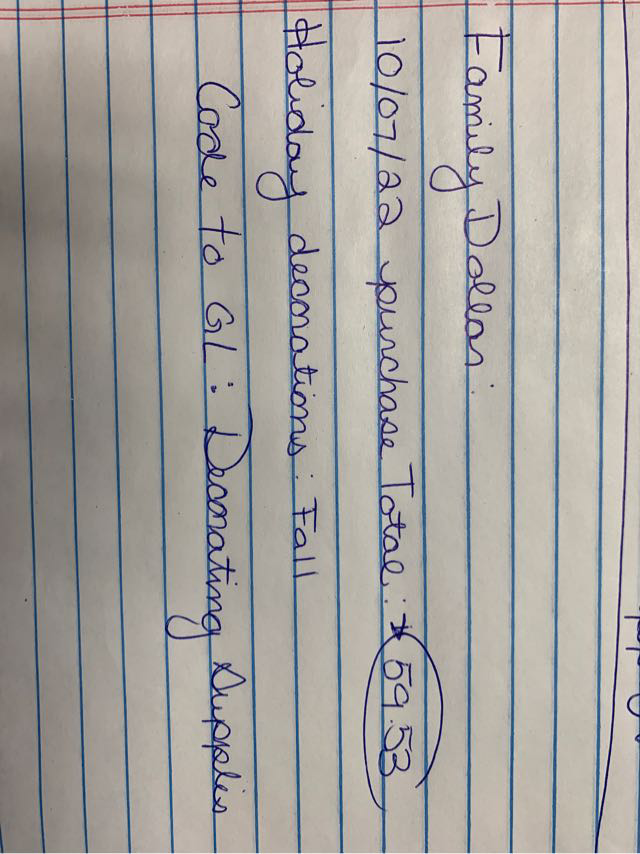 Family Dollar:
10/07/22 purchase Total: * 59.53
Holiday decorations: Fall
Code to GL: Decorating Supplies